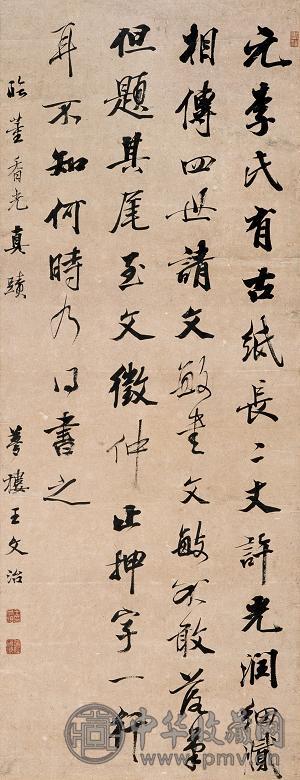 元李氏有古紙長二丈許光潤細膩
相傳四世請文敏書文敏不敢落筆
但題其尾至文徵仲止押字一行
耳不知何時乃得書之
臨董香光真蹟
夢樓王文治
中华收藏网
www.pmv.cn